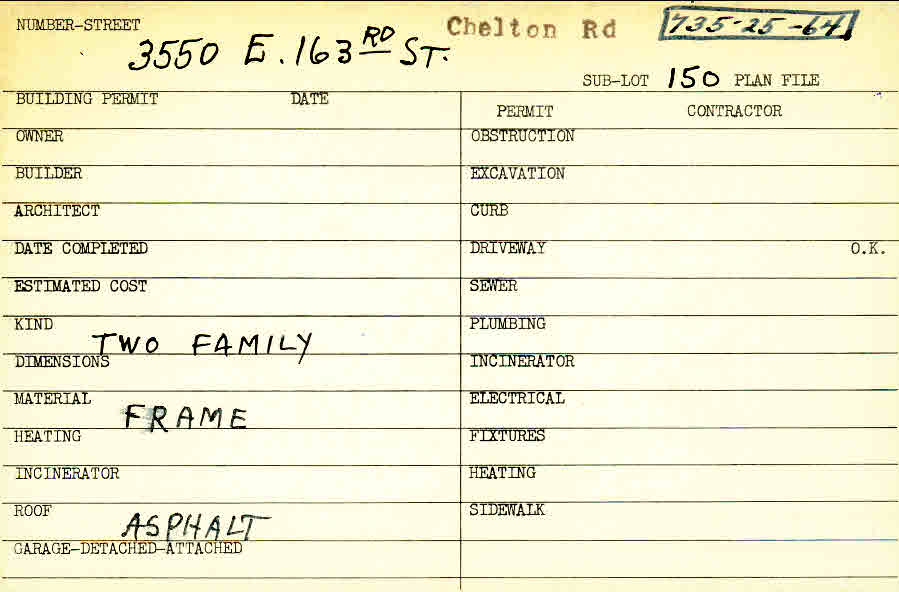 NUMBER-STREET Chelton Rd 735-25-64
3550 E. 163RD ST.
SUB-LOT 150 PLAN FILE
BUILDING PERMIT DATE
PERMIT CONTRACTOR
OWNER
OBSTRUCTION
BUILDER
EXCAVATION
ARCHITECT
CURB
DATE COMPLETED
DRIVEWAY O.K.
ESTIMATED COST
SEWER
KIND TWO FAMILY
PLUMBING
DIMENSIONS
INCINERATOR
MATERIAL FRAME
ELECTRICAL
HEATING
FIXTURES
INCINERATOR
HEATING
ROOF ASPHALT
SIDEWALK
GARAGE-DETACHED-ATTACHED